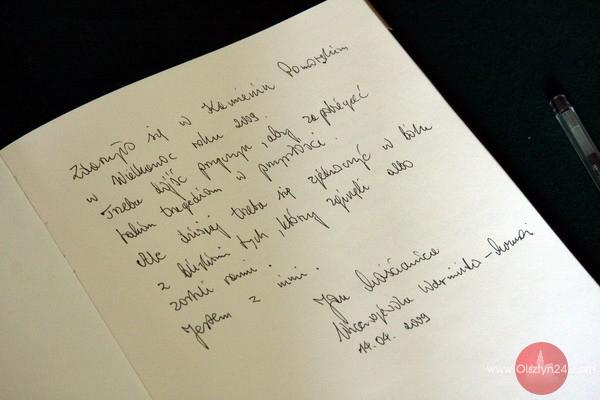 Zdarzyło się w Kamieniu Pomorskim
w Wielkanoc roku 2009.
Trzeba dojść przyczyn, aby zapobiegać
takim tragediom w przyszłości.
Ale dzisiaj trzeba się zjednoczyć w bólu
z bliskimi tych, którzy zginęli albo
zostali ranni.
Jestem z nimi.
Jan Maścianica
Wicewojewoda Warmińsko-Mazu
14.04.2009
www.Olsztyn24.com